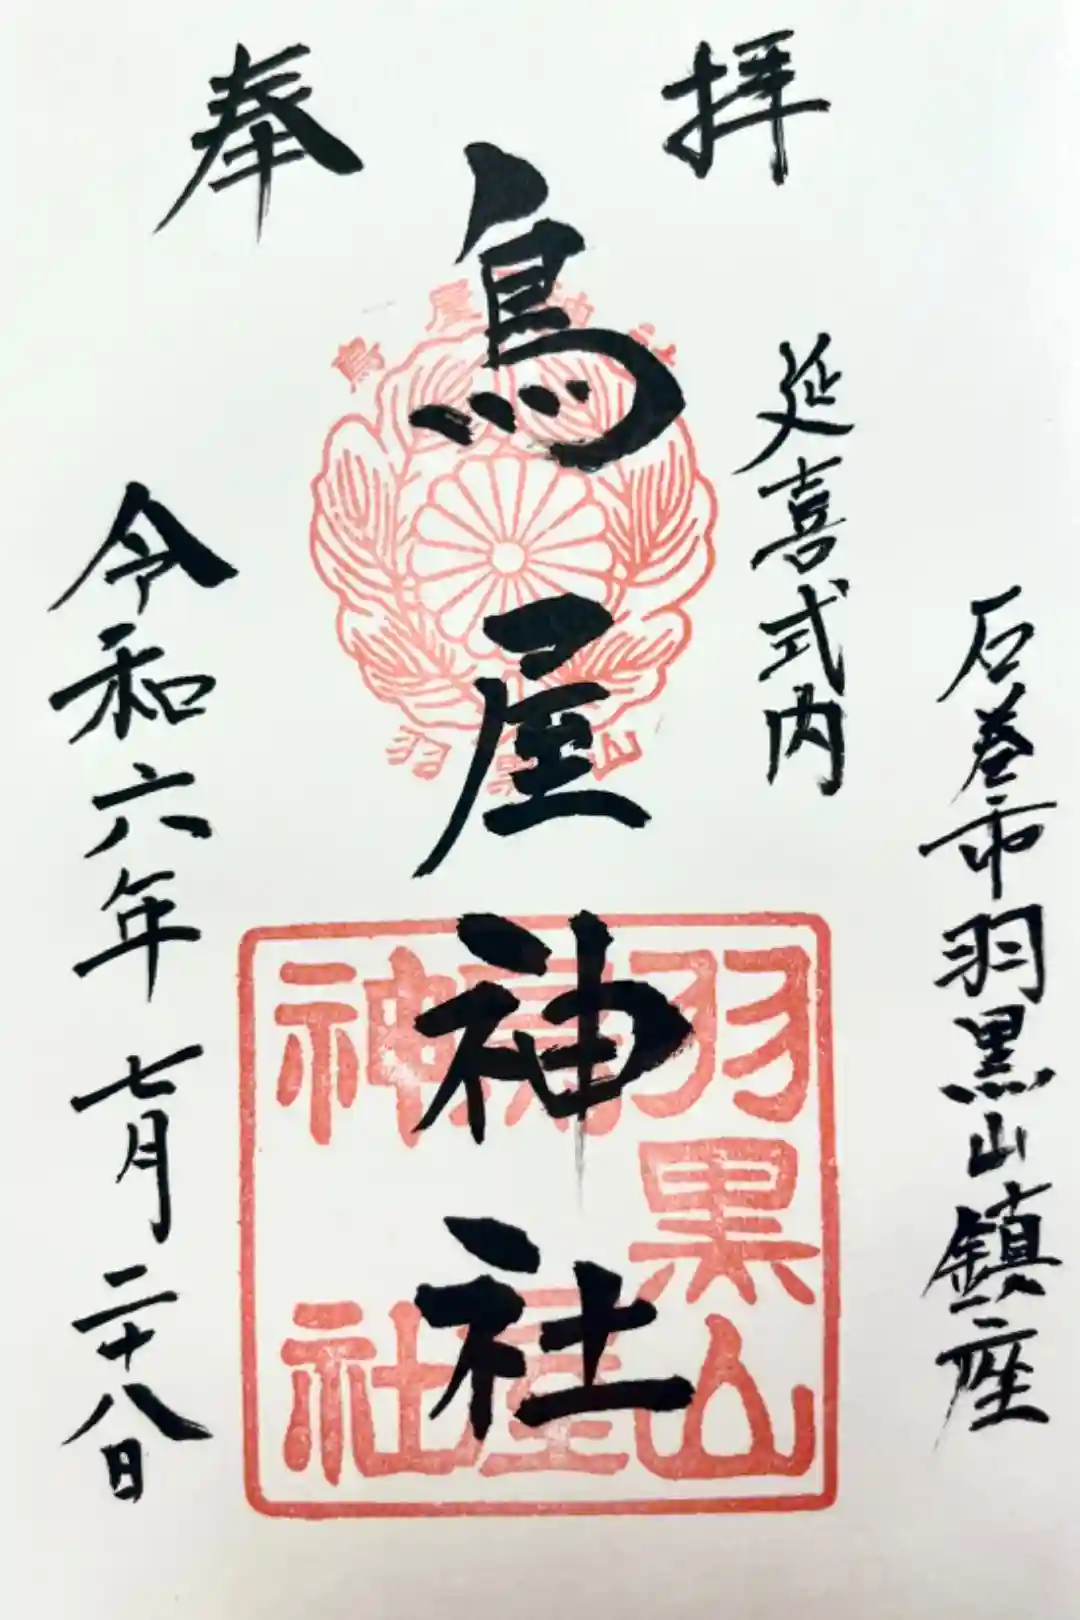 奉拝
石巻市羽黒山鎮座
延喜式内
鳥屋神社
令和六年七月二十八日
鳥屋神社
羽黒山
羽黒山
鳥屋
神社